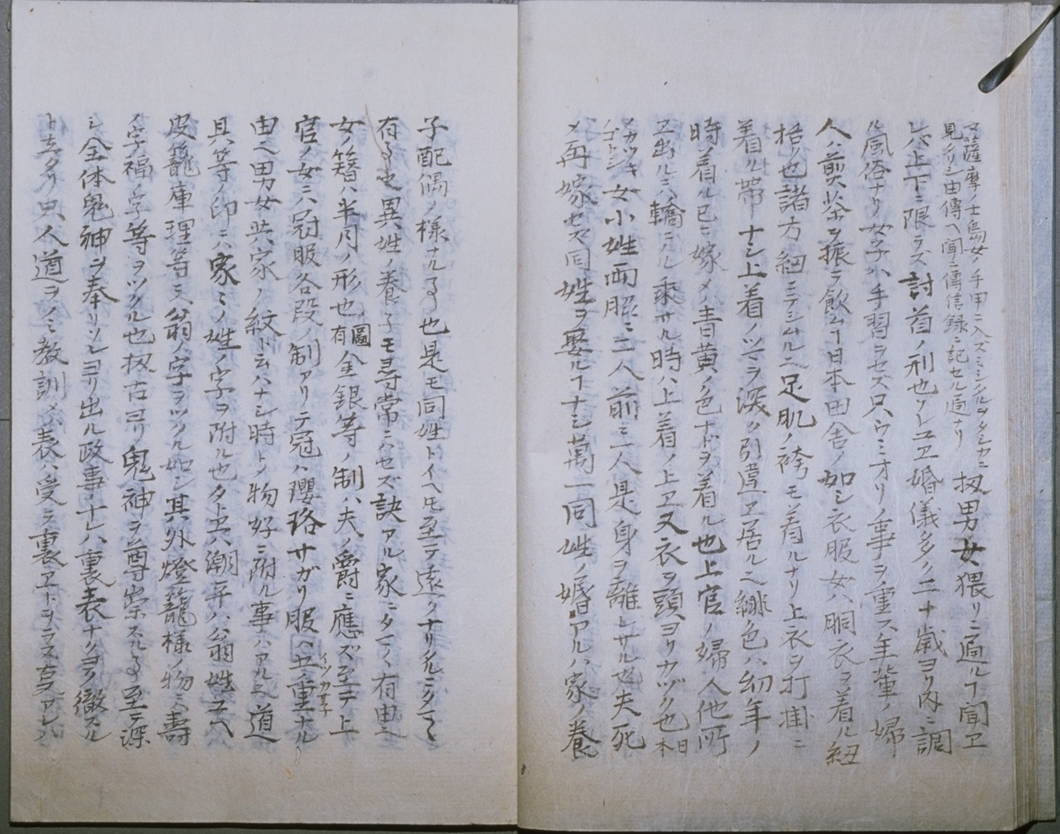 マ薩摩ノ士島女ノ手甲ニ入ズミシタルヲタシカニ
見タリシ由傳ヘ聞ニ傳信録ニ記セル通ナリ
扨男女猥リニ過ルヿ聞ヱ
レハ上下ニ限ラズ討首ノ刑也ソレユヱ婚儀多ク二十歳ヨリ内ニ調
ル風俗ナリ女子ハ手習ラセズ只ウミオリノ事ヲ重ス年輩ノ婦
人ハ煎茶ヲ振ラ飲ムヿ日本田舎ノ如シ衣服女ハ胴衣ヲ着ル紐
ノ也諸方紐ニテシムル足肌ノ袴モ着ルナリ上衣ヲ打掛ニ
着ル帯ナシ上着ノツマラ深ク引違ヱ居ル緋色ハ幼年ノ
時ノ着ル已ニ嫁メハ青黄ノ色ナドヲ着ル也上官ノ婦人他所
ヱ出ルニハ轎ニノル乗サル時ハ上着ノ上ヱ又衣ヲ頭ヨリカヅク也日本
ノカツキノゴトシ女小姓両脇ニ二人前ニ二人是身ヲ離レサル也夫死
メ再嫁セズ同姓ヲ娶ルヿナシ萬一同姓ノ婚アルハ家ノ養
子配偶ノ様ナルヿ也是モ同姓トイヘトモ至テ遠クナリタルニタマ〱
有ルヿ也異姓ノ養子モ尋常ニセズ訣アル家ニタマ〱有由
女ノ簪ハ半月ノ形也圖有金銀等ノ制ハ夫ノ爵ニ應ズ至テ上
官ノ女ニハ冠服各段ノ制アリテ冠ハ瓔珞サガリ服ハ五ノ重ナル
由男女共家ノ紋ト云ハナシ時トノ物好ニ附ル事ハアル道
具等ノ印ニハ家〱ノ姓ノ字ヲ附ル也タトヱハ潮平ハ翁姓ユヘ
皮籠庫理等ニ翁ノ字ヲツクル如シ其外燈籠様ノ物ハ壽
ノ字福ノ字等ヲツクル也扨古ヨリ鬼神ヲ尊崇スルヿ至テ深
シ全体鬼神ヲ奉リソレヨリ出ル政事ナレハ裏表ナクヨク徹スル
ト云タリ只人道ヲノミ教訓メハ表ハ受テ裏ヱトヲラス